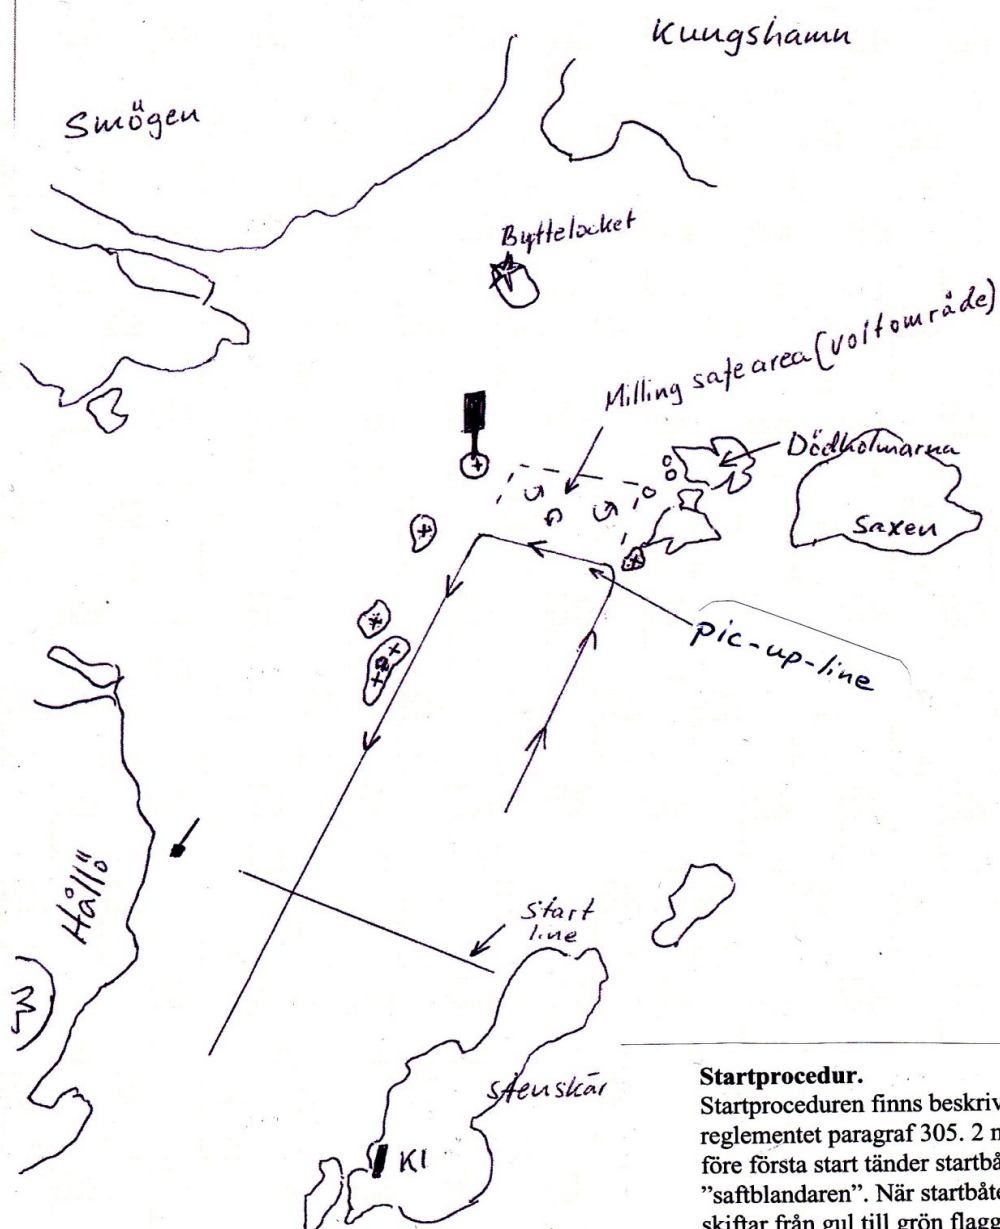 Kungshamn
Smögen
Byttelocket
Milling safe area (voltområde)
Dödholmarna
Saxen
pic-up-line
Hållö
Start
line
Stenskär
K1
Startprocedur.
Startproceduren finns beskriv
reglementet paragraf 305. 2 m
före första start tänder startbå
"saftblandaren". När startbåte
skiftar från gul till grön flagg